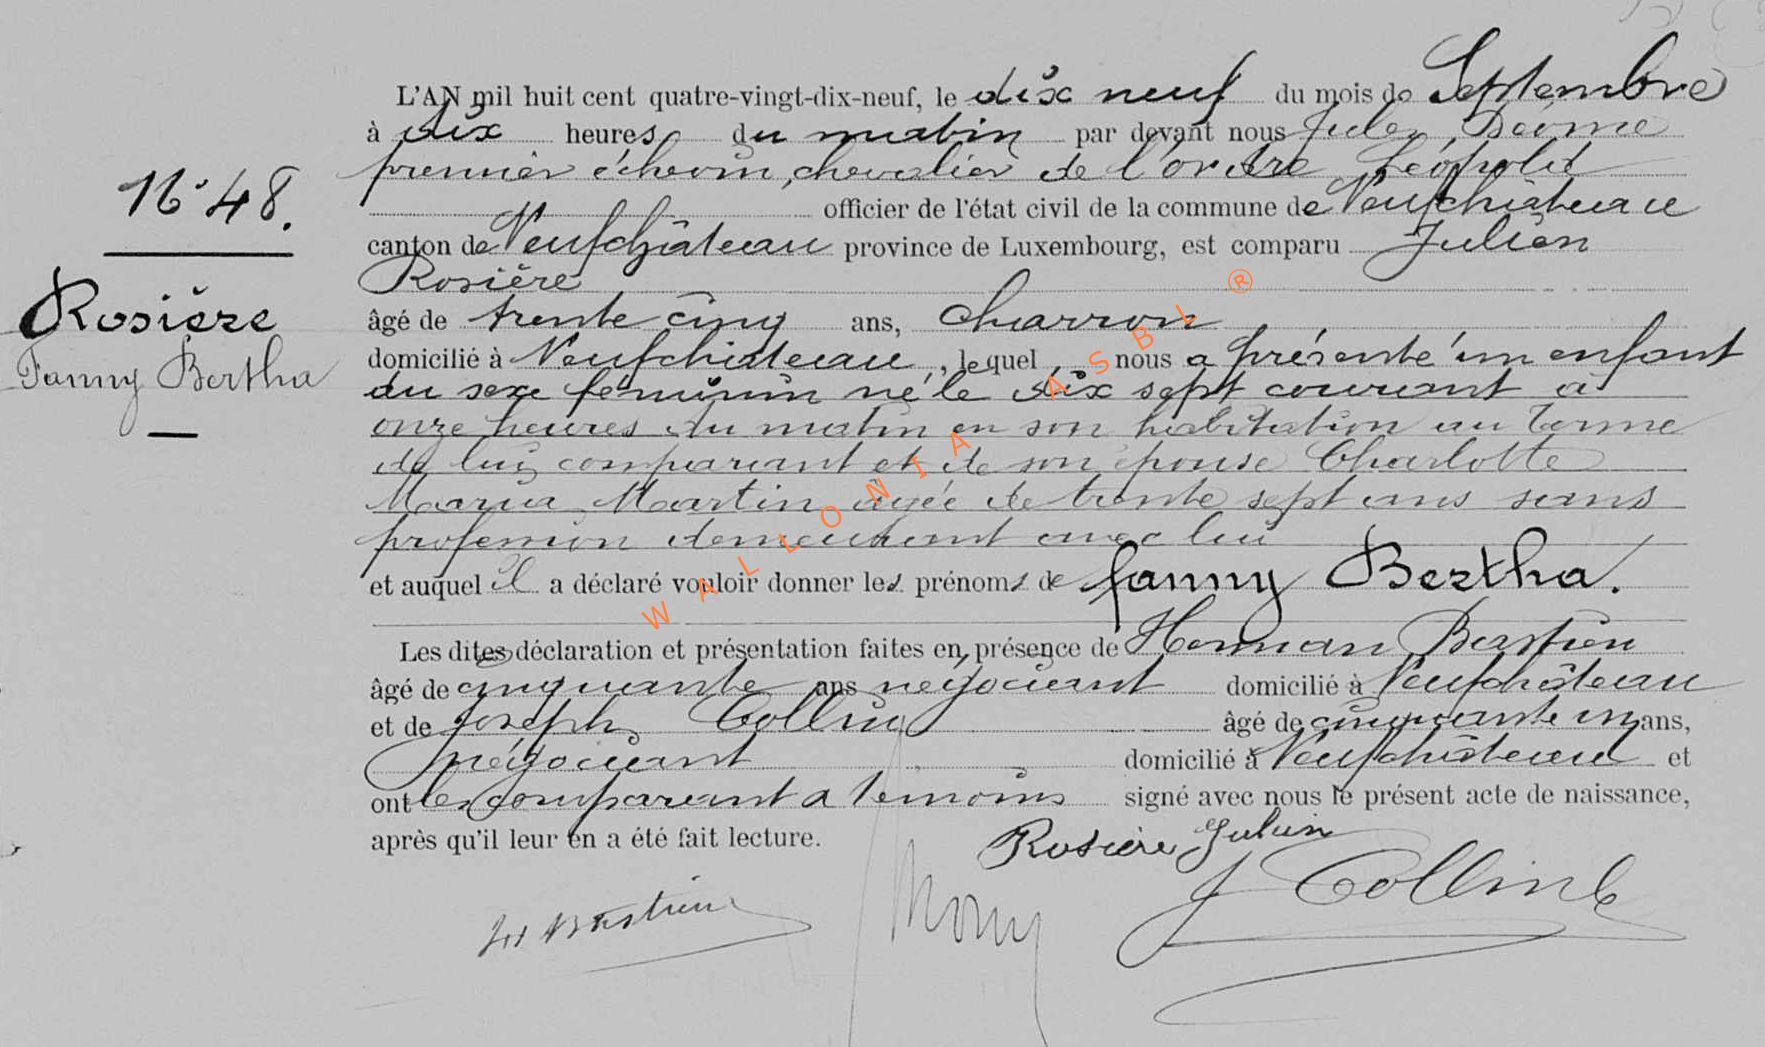 L'AN mil huit cent quatre-vingt-dix-neuf, le dix neuf du mois de Septembre
à dix heures du matin par devant nous Jules,
premier échevin, chevalier de l'ordre Léopold
officier de l'état civil de la commune de Neufchâteau
canton de Neufchâteau province de Luxembourg, est comparu Julien
Rosière
âgé de trente cinq ans, charron
domicilié à Neufchâteau, lequel nous a présenté un enfant
du sexe féminin né le dix sept courant à
onze heures du matin en son habitation au Terme
de lui comparant et de son épouse Charlotte
Maria Martin âgée de trente sept ans sans
profession demeurant avec lui
et auquel il a déclaré vouloir donner les prénoms de Fanny Bertha.
Les dites déclaration et présentation faites en présence de Herman Bastien
âgé de cinquante ans négociant domicilié à Neufchâteau
et de Joseph Collin âgé de cinquante un ans,
négociant domicilié à Neufchâteau et
ont les comparant a témoins signé avec nous le présent acte de naissance,
après qu'il leur en a été fait lecture.
Rosière Julien
J Collin
H Bastien
No 48.
Rosière
Fanny Bertha
WALLONIA ASBL ®